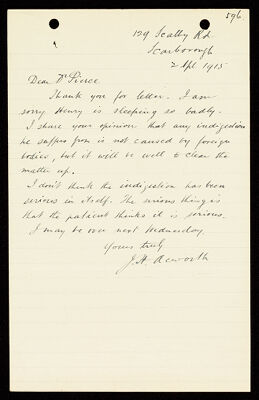 596.
129 Scalby Rd.
Scarborough
2 Apl 1915
Dear Dr Pierce
Thank you for letter. I am
sorry Henry is sleeping so badly.
I share your opinion that any indigestion
he suffers from is not caused by foreign
bodies, but it will be well to clear the
matter up.
I don't think the indigestion has been
serious in itself. The serious thing is
that the patient thinks it is serious.
I may be over next Wednesday.
Yours truly
J. H. Acworth